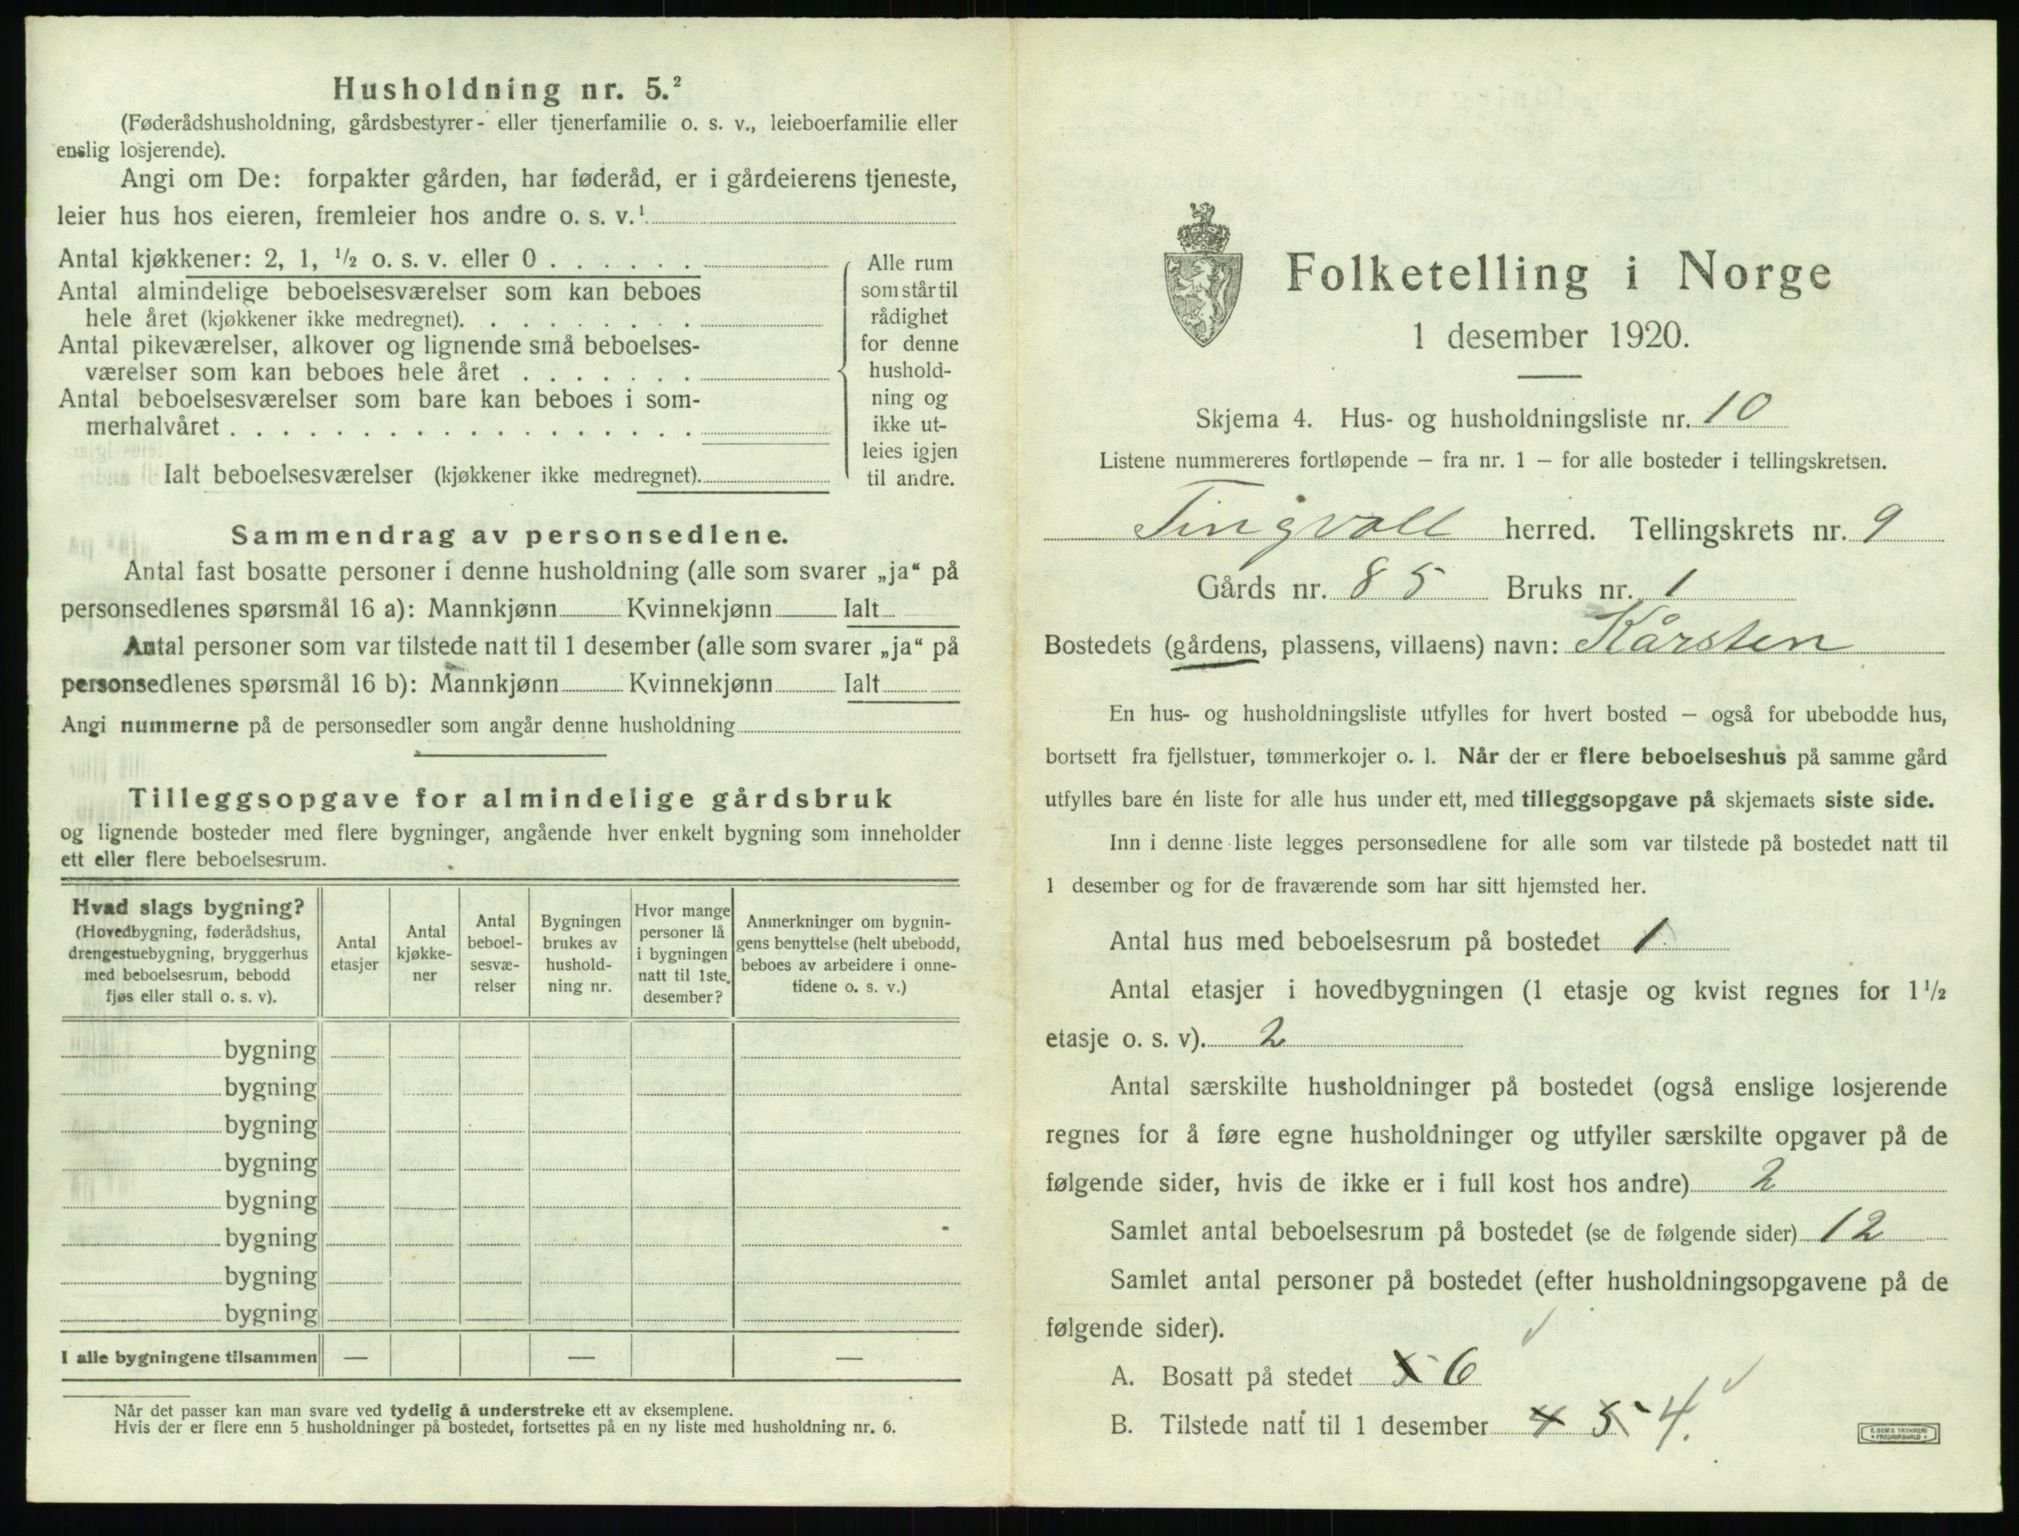 Husholdning nr. 5.²
(Føderådshusholdning, gårdsbestyrer- eller tjenerfamilie o. s. v., leieboerfamilie eller
enslig losjerende).
Angi om De: forpakter gården, har føderåd, er i gårdeierens tjeneste,
leier hus hos eieren, fremleier hos andre o. s. v.¹
Antal kjøkkener: 2, 1, ½ o. s. v. eller 0 . . . . . .
Antal almindelige beboelsesværelser som kan beboes
hele året (kjøkkener ikke medregnet). . . . . . . . .
Antal pikeværelser, alkover og lignende små beboelses-
værelser som kan beboes hele året . . . . . . .
Antal beboelsesværelser som bare kan beboes i som-
merhalvåret . . . . . . . . . . . . . . . . . .
Ialt beboelsesværelser (kjøkkener ikke medregnet).
Alle rum
som står til
rådighet
for denne
hushold-
ning og
ikke ut-
leies igjen
til andre.
Sammendrag av personsedlene.
Antal fast bosatte personer i denne husholdning (alle som svarer „ja“ på
personsedlenes spørsmål 16 a): Mannkjønn Kvinnekjønn Ialt
Antal personer som var tilstede natt til 1 desember (alle som svarer „ja“ på
personsedlenes spørsmål 16 b): Mannkjønn Kvinnekjønn Ialt
Angi nummerne på de personsedler som angår denne husholdning
Tilleggsopgave for almindelige gårdsbruk
og lignende bosteder med flere bygninger, angående hver enkelt bygning som inneholder
ett eller flere beboelsesrum.
Hvad slags bygning?
(Hovedbygning, føderådshus,
drengestuebygning, bryggerhus
med beboelsesrum, bebodd
fjøs eller stall o. s. v).
Antal
etasjer
Antal
kjøkke-
ner
Antal
beboel-
sesvæ-
relser
Bygningen
brukes av
hushold-
ning nr.
Hvor mange
personer lå
i bygningen
natt til 1ste
desember?
Anmerkninger om bygnin-
gens benyttelse (helt ubebodd,
beboes av arbeidere i onne-
tidene o. s. v.)
bygning
bygning
bygning
bygning
bygning
bygning
bygning
bygning
I alle bygningene tilsammen — — —
Når det passer kan man svare ved tydelig å understreke ett av eksemplene.
Hvis der er flere enn 5 husholdninger på bostedet, fortsettes på en ny liste med husholdning nr. 6.
Folketelling i Norge
1 desember 1920.
Skjema 4. Hus- og husholdningsliste nr. 10
Listene nummereres fortløpende – fra nr. 1 – for alle bosteder i tellingskretsen.
Tingvoll herred. Tellingskrets nr. 9
Gårds nr. 85 Bruks nr. 1
Bostedets (gårdens, plassens, villaens) navn: Kårsten
En hus- og husholdningsliste utfylles for hvert bosted – også for ubebodde hus,
bortsett fra fjellstuer, tømmerkojer o. l. Når der er flere beboelseshus på samme gård
utfylles bare én liste for alle hus under ett, med tilleggsopgave på skjemaets siste side.
Inn i denne liste legges personsedlene for alle som var tilstede på bostedet natt til
1 desember og for de fraværende som har sitt hjemsted her.
Antal hus med beboelsesrum på bostedet 1
Antal etasjer i hovedbygningen (1 etasje og kvist regnes for 1½
etasje o. s. v). 2
Antal særskilte husholdninger på bostedet (også enslige losjerende
regnes for å føre egne husholdninger og utfyller særskilte opgaver på de
følgende sider, hvis de ikke er i full kost hos andre) 2
Samlet antal beboelsesrum på bostedet (se de følgende sider) 12
Samlet antal personer på bostedet (efter husholdningsopgavene på de
følgende sider).
A. Bosatt på stedet 5 6
B. Tilstede natt til 1 desember 4 5 4.